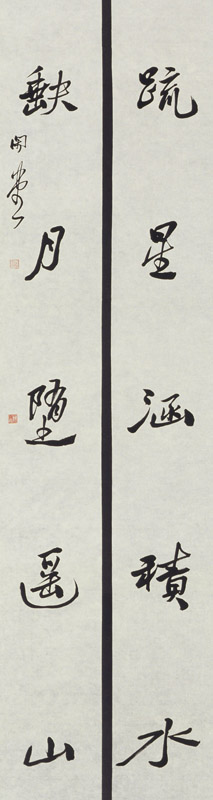 疏星涵積水
缺月墮遥山